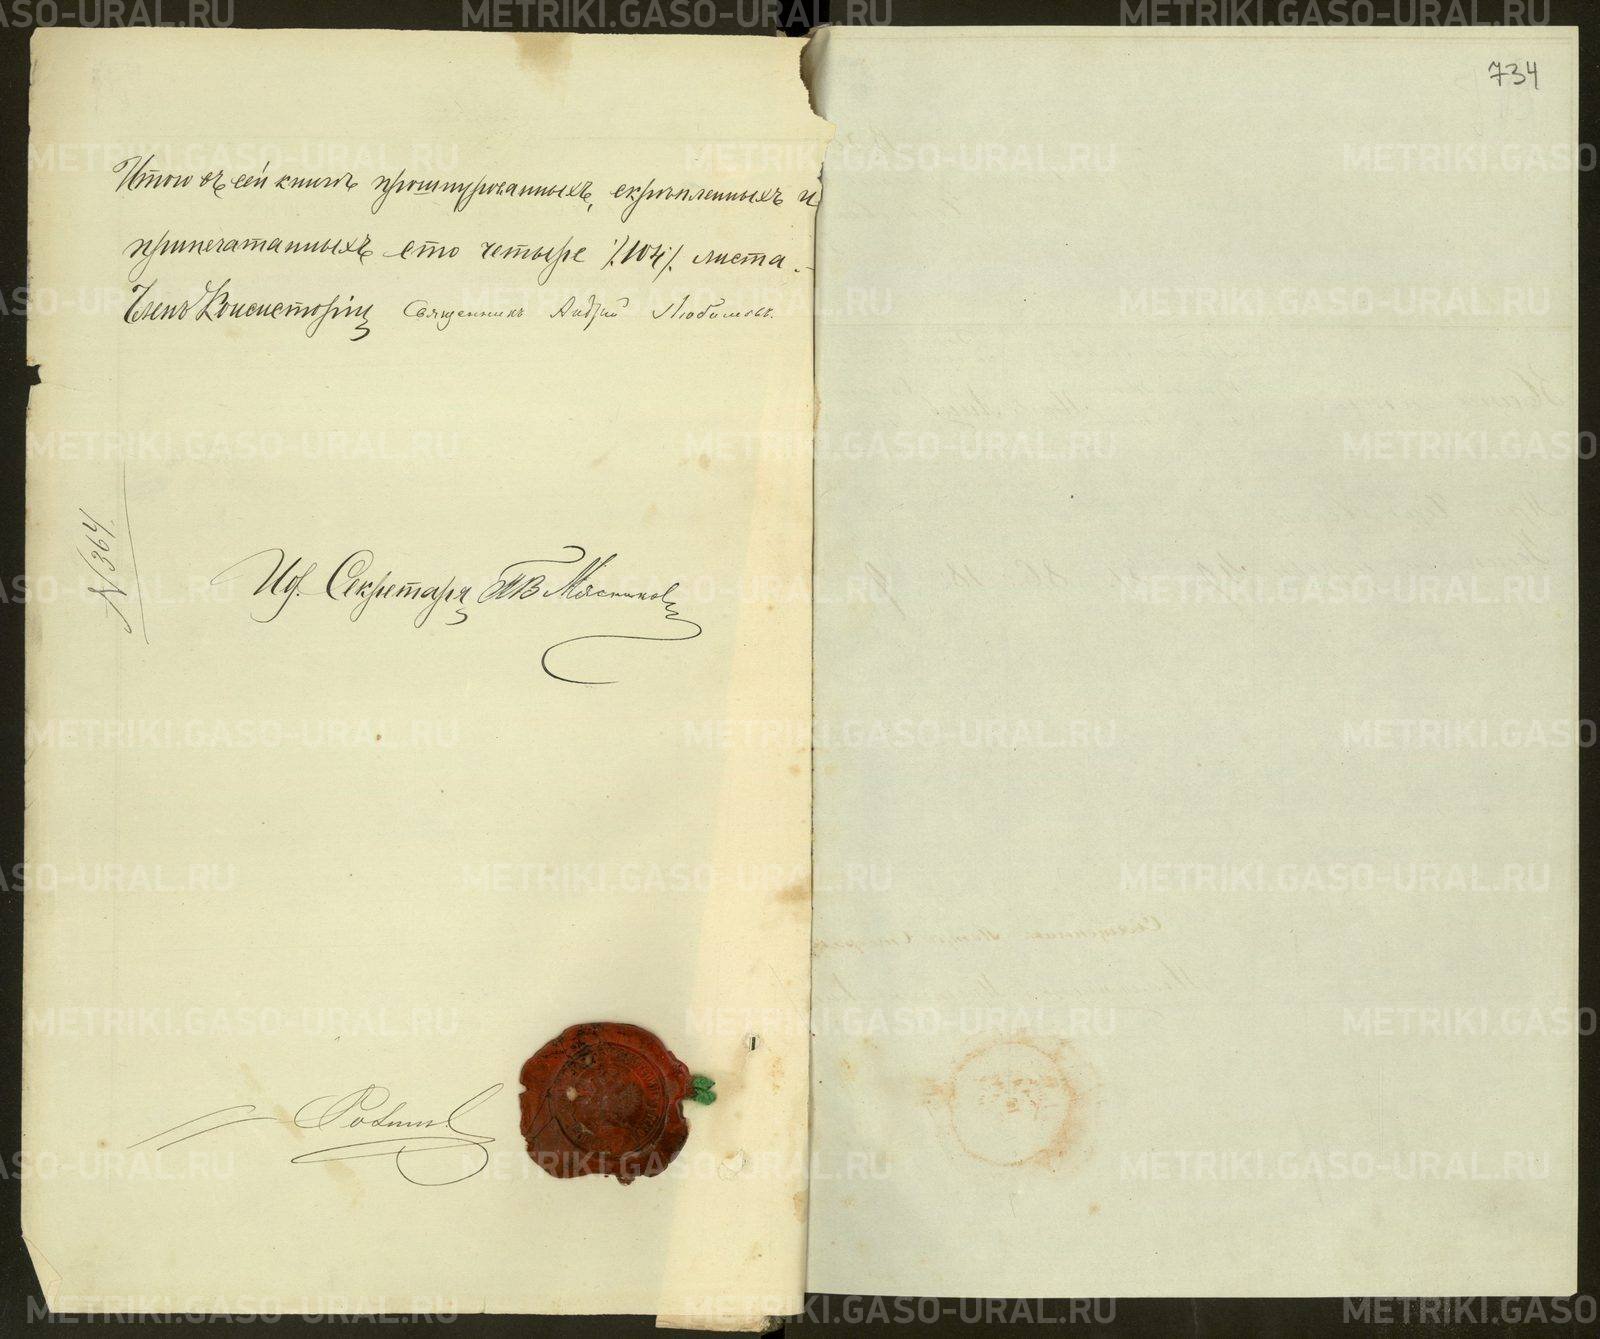 Итого въ сей книгѣ прошнурованныхъ, скрѣпленныхъ и
припечатанныхъ сто четыре /.104/. листа.
Членъ Консисторіи Священникъ Андрей Любимовъ.
№ 364
Иб. Секретаря
734
METRIKI.GASO-URAL.RU